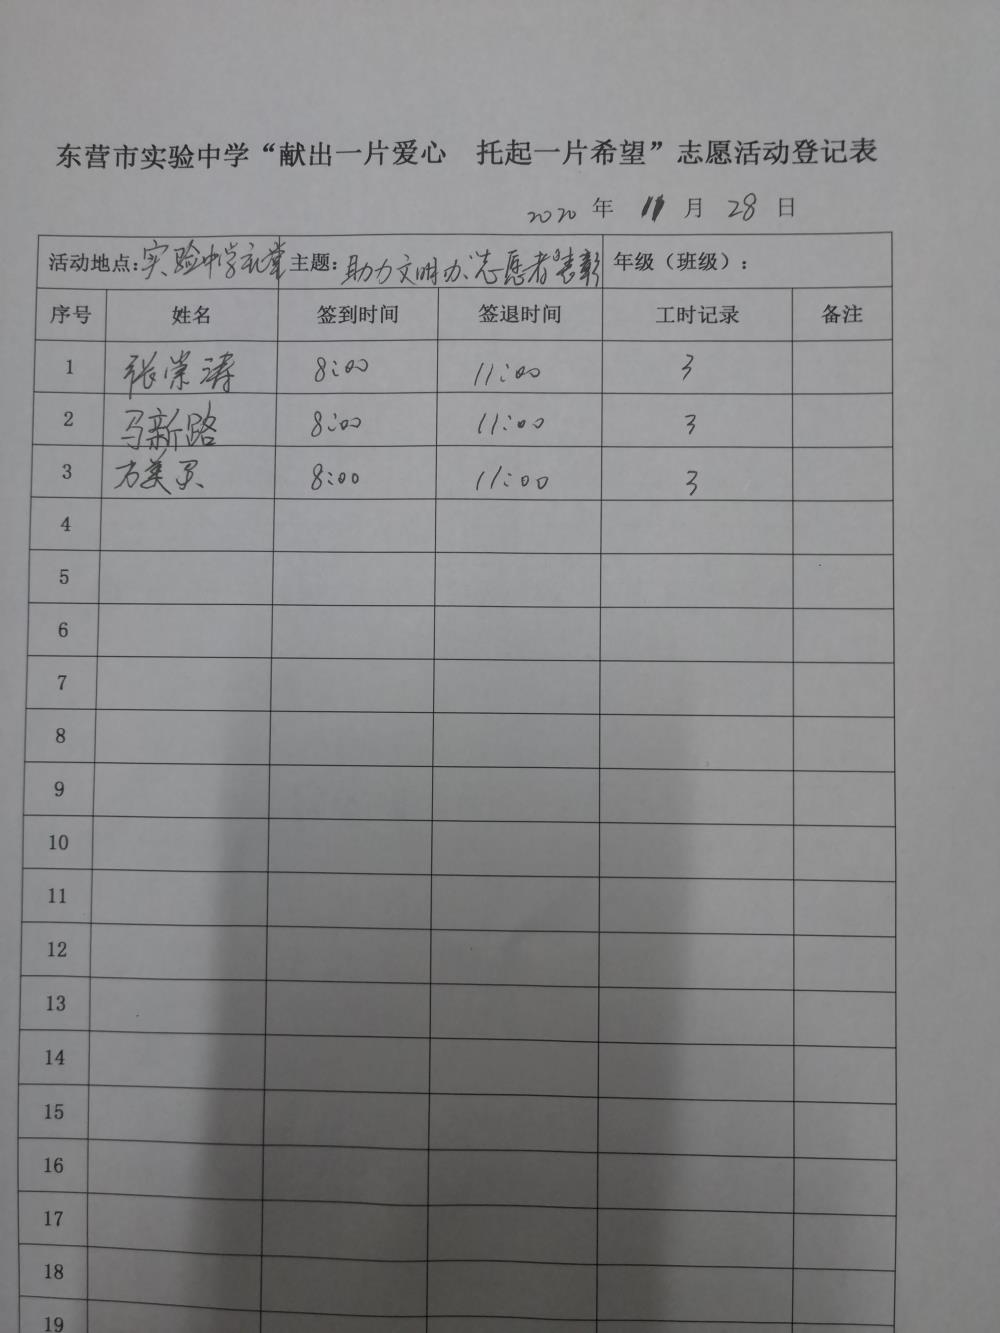 东营市实验中学“献出一片爱心 托起一片希望”志愿活动登记表
2020 年 11 月 28 日
活动地点：实验中学礼堂 主题：助力文明办志愿者表彰 年级（班级）：
序号 姓名 签到时间 签退时间 工时记录 备注
1 张崇涛 8:00 11:00 3
2 马新路 8:00 11:00 3
3 8:00 11:00 3
4
5
6
7
8
9
10
11
12
13
14
15
16
17
18
19